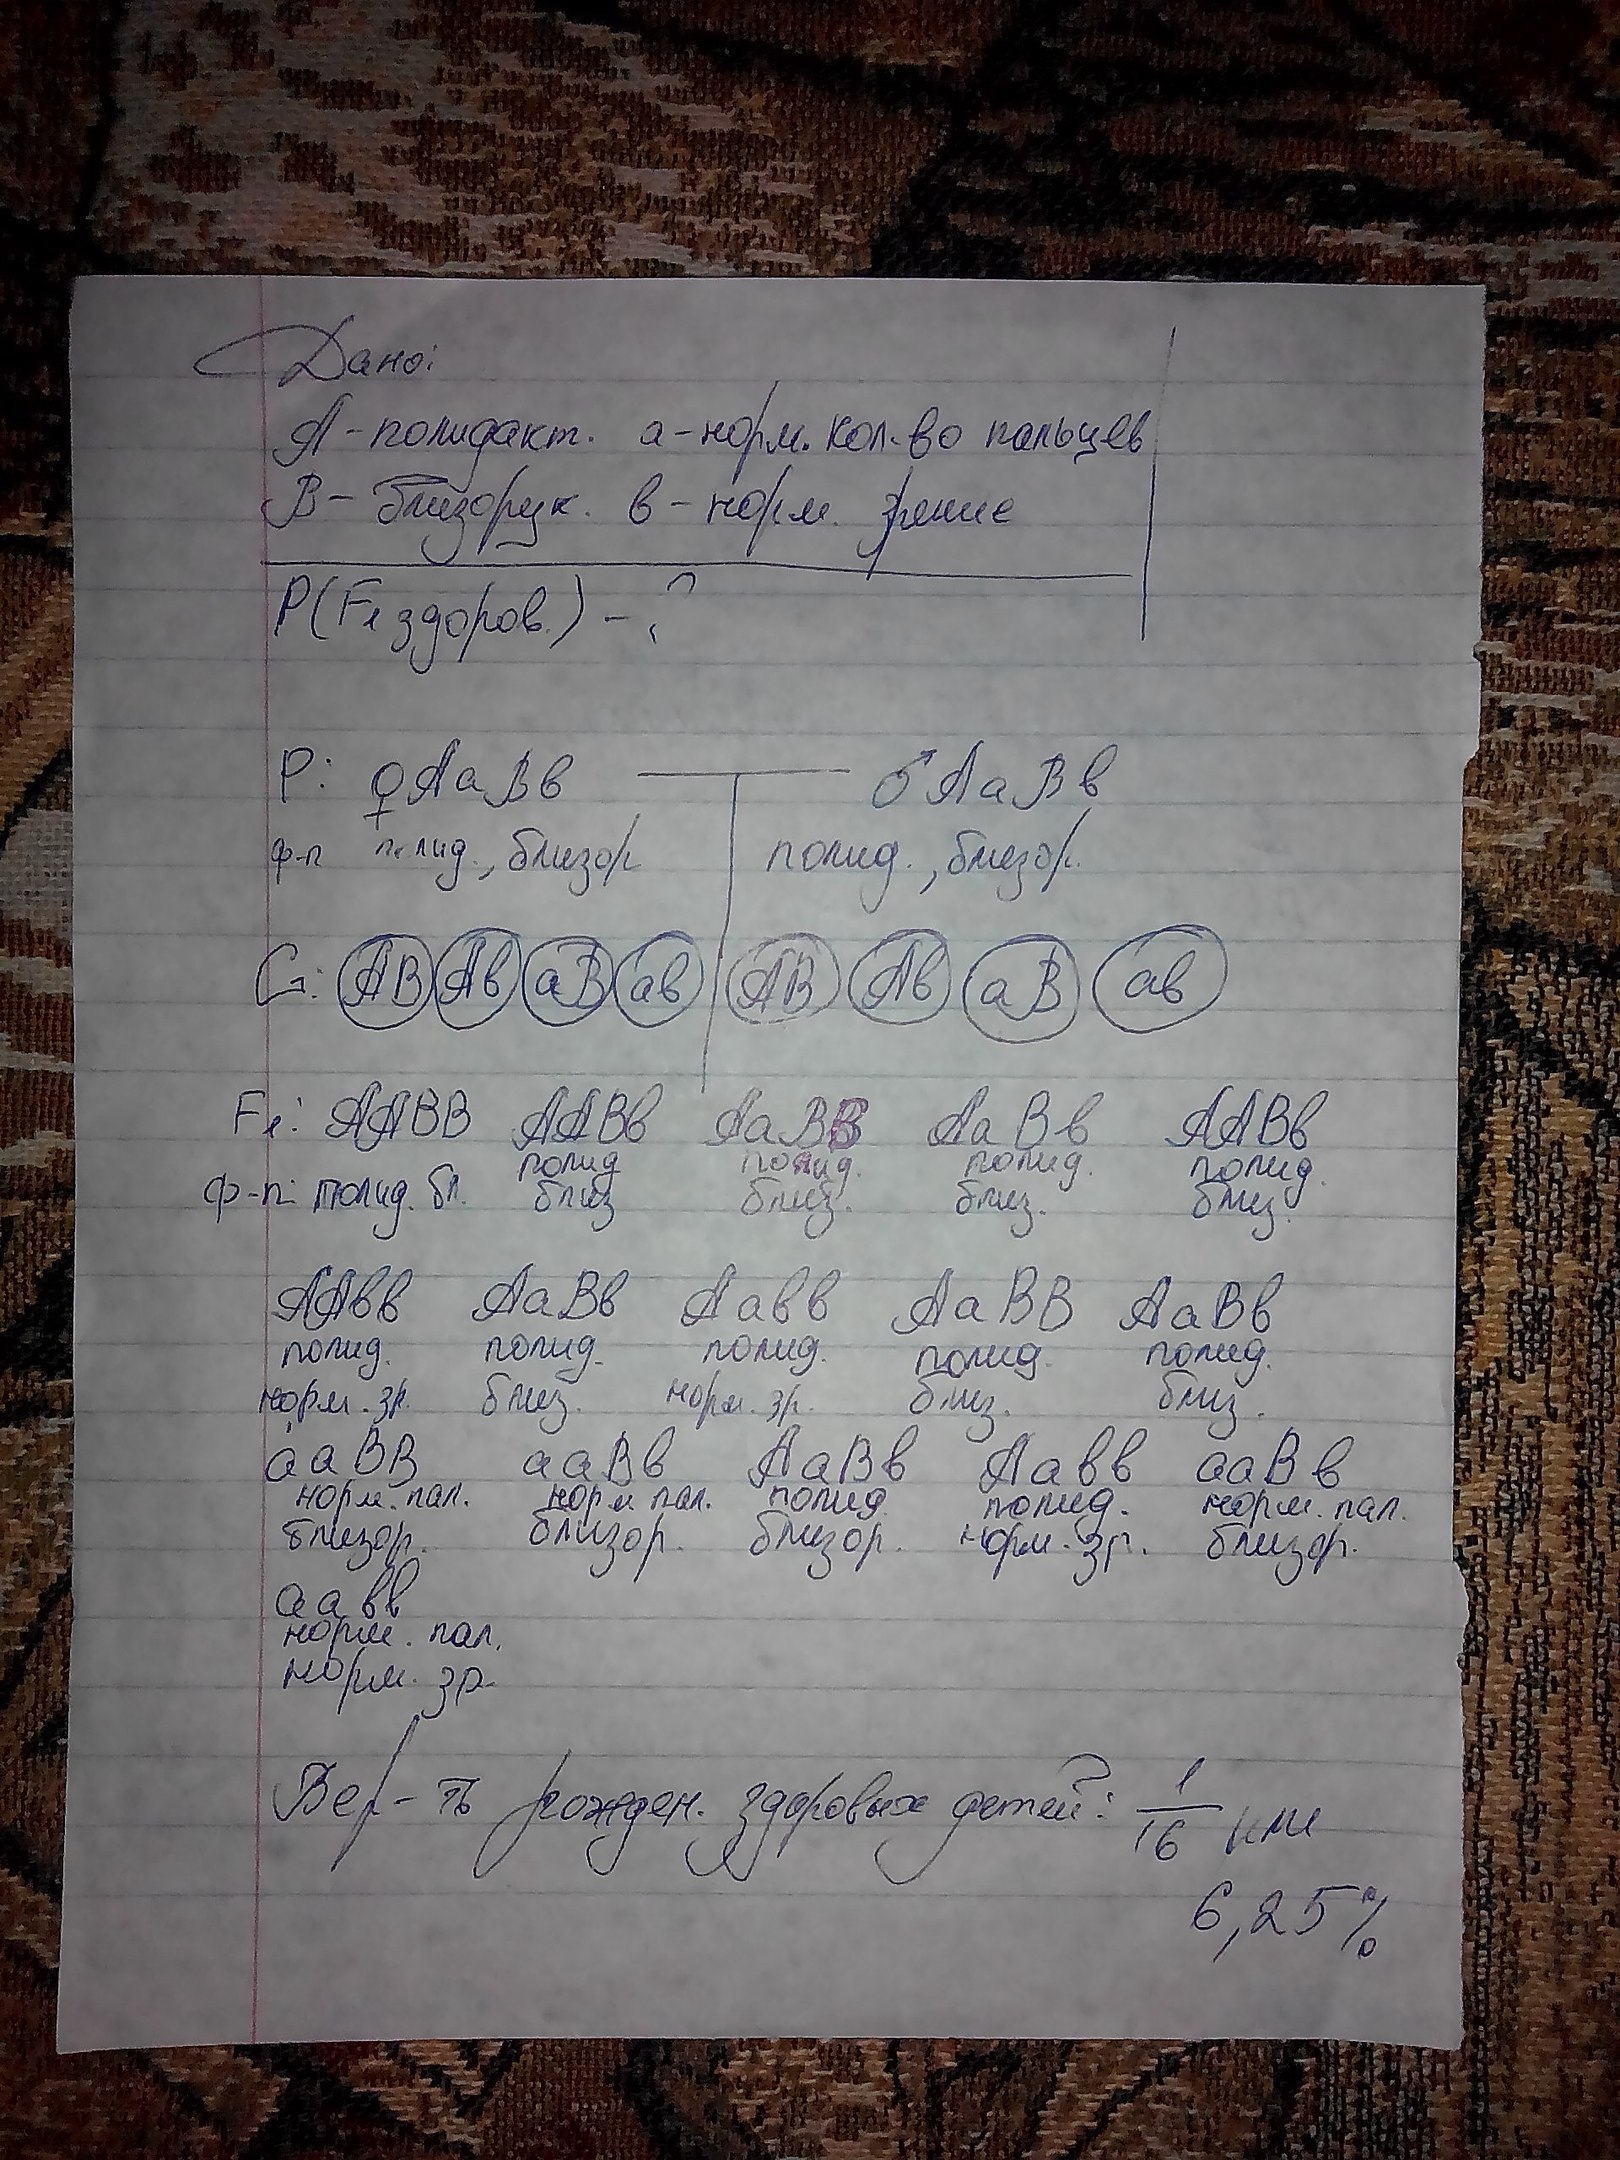 Дано:
А - полидакт. а - норм. кол-во пальцев
В - близорук. в - норм. зрение
P(F1 здоров.) - ?
P: ♀ АаВв ♂ АаВв
ф-п полид., близор полид., близор.
G: АВ Ав аВ ав АВ Ав аВ ав
F1: ААВВ ААВв АаВВ АаВв ААВв
полид полид. полид. полид.
ф-п: полид. бл. близ близ. близ. близ.
ААвв АаВв Аавв АаВВ АаВв
полид. полид. полид. полид. полид.
норм. зр. близ. норм. зр. близ. близ.
ааВВ ааВв АаВв Аавв ааВв
норм. пал. норм пал. полид. полид. норм. пал.
близор. близор. близор. норм. зр. близор.
аавв
норм. пал.
норм. зр.
Вер-ть рожден. здоровых детей: 1/16 или
6,25%